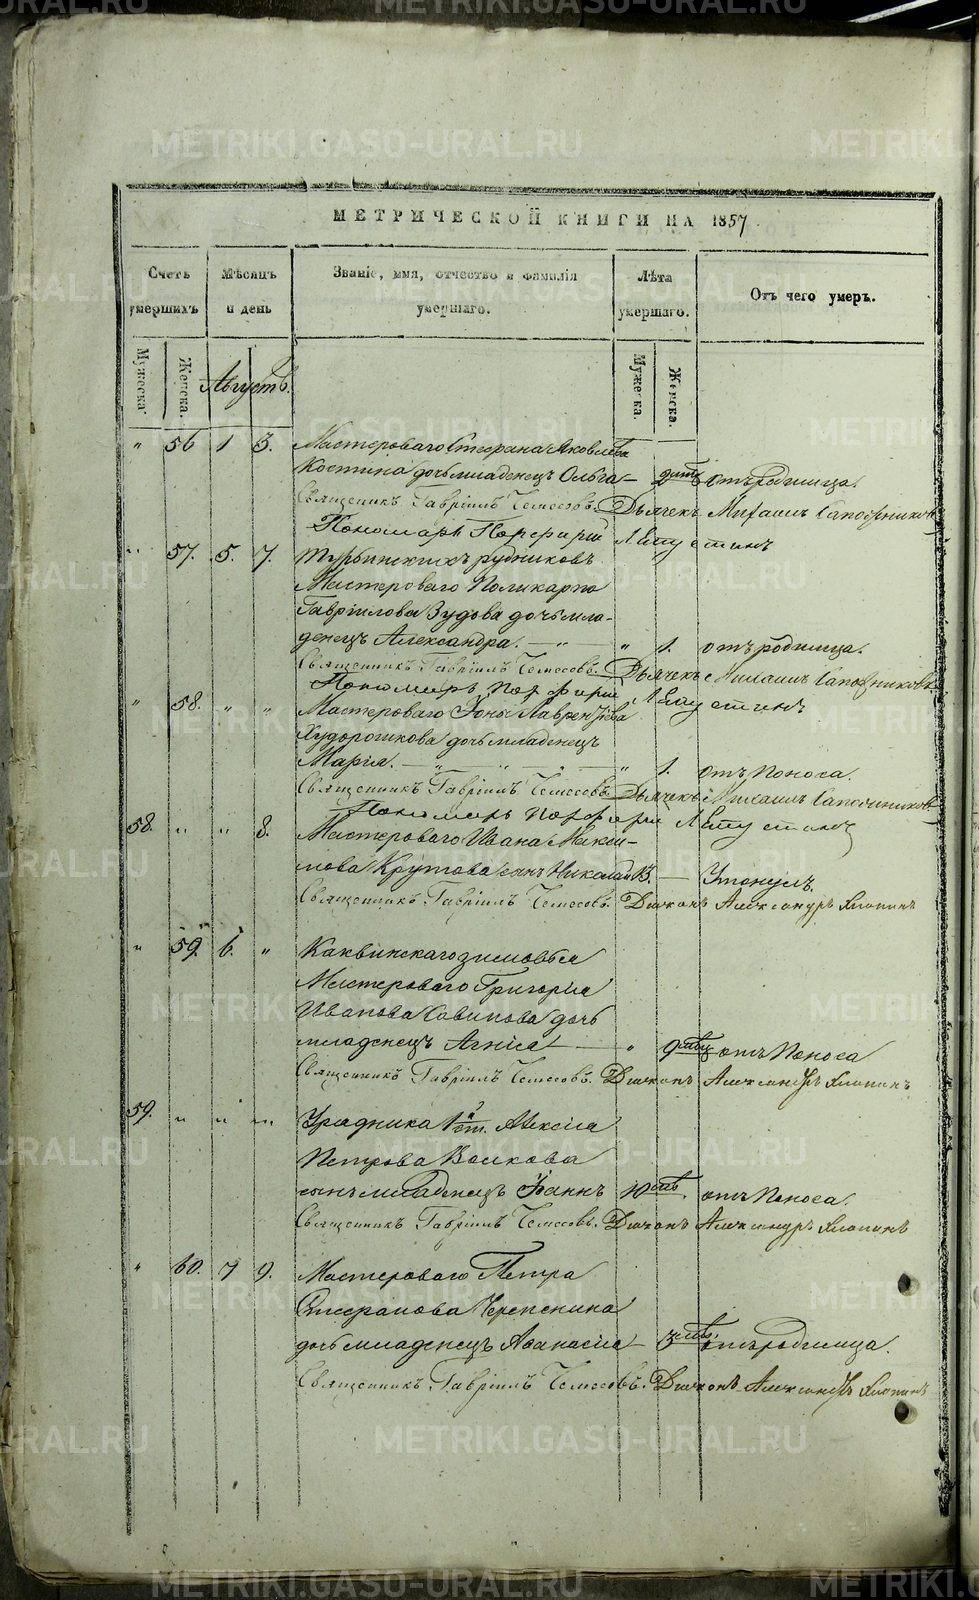 METRIKI.GASO-URAL.RU
МЕТРИЧЕСКОЙ КНИГИ НА 1857
Счетъ умершихъ
Мѣсяцъ и день
Званіе, имя, отчество и фамилія умершаго.
Лѣта умершаго.
Отъ чего умеръ.
Мужеска.
Женска.
Августъ.
Мужеска.
Женска.
" 56 1 3. Мастероваго Стефана Яковлева
Костина дочь младенецъ Ольга отъ родимца.
Священникъ Гавріилъ Дьячекъ Михаилъ Сапожниковъ
Пономарь Порфирій
" 57. 5. 7. Турьинскихъ рудниковъ
Мастероваго Поликарпа
Гавріилова Зудова дочь мла-
денецъ Александра. " 1. отъ родимца.
Священникъ Гавріилъ Дьячекъ Михаилъ Сапожниковъ
Пономарь Порфирій
" 58. " " Мастероваго Іоны Лаврентіева
Худорошкова дочь младенецъ
Марія. " 1. отъ поноса.
Священникъ Гавріилъ Дьячекъ Михаилъ Сапожниковъ
Пономарь Порфирій
58. " " 8. Мастероваго Ивана Макси-
мова Крутова сынъ Николай 13. Утонулъ.
Священникъ Гавріилъ Діаконъ Александръ Хлопинъ
" 59. 6. " Каквинскаго зимовья
Мастероваго Григорія
Иванова дочь
младенецъ Агнія " отъ поноса
Священникъ Гавріилъ Діаконъ Александръ Хлопинъ
59. " " " Урядника 1й ст. Алексія
Петрова Волкова
сынъ младенецъ Іоаннъ отъ поноса.
Священникъ Гавріилъ Діаконъ Александръ Хлопинъ
" 60. 7 9. Мастероваго Петра
Стефанова Черепенина
дочь младенецъ Афанасія отъ родимца.
Священникъ Гавріилъ Діаконъ Александръ Хлопинъ